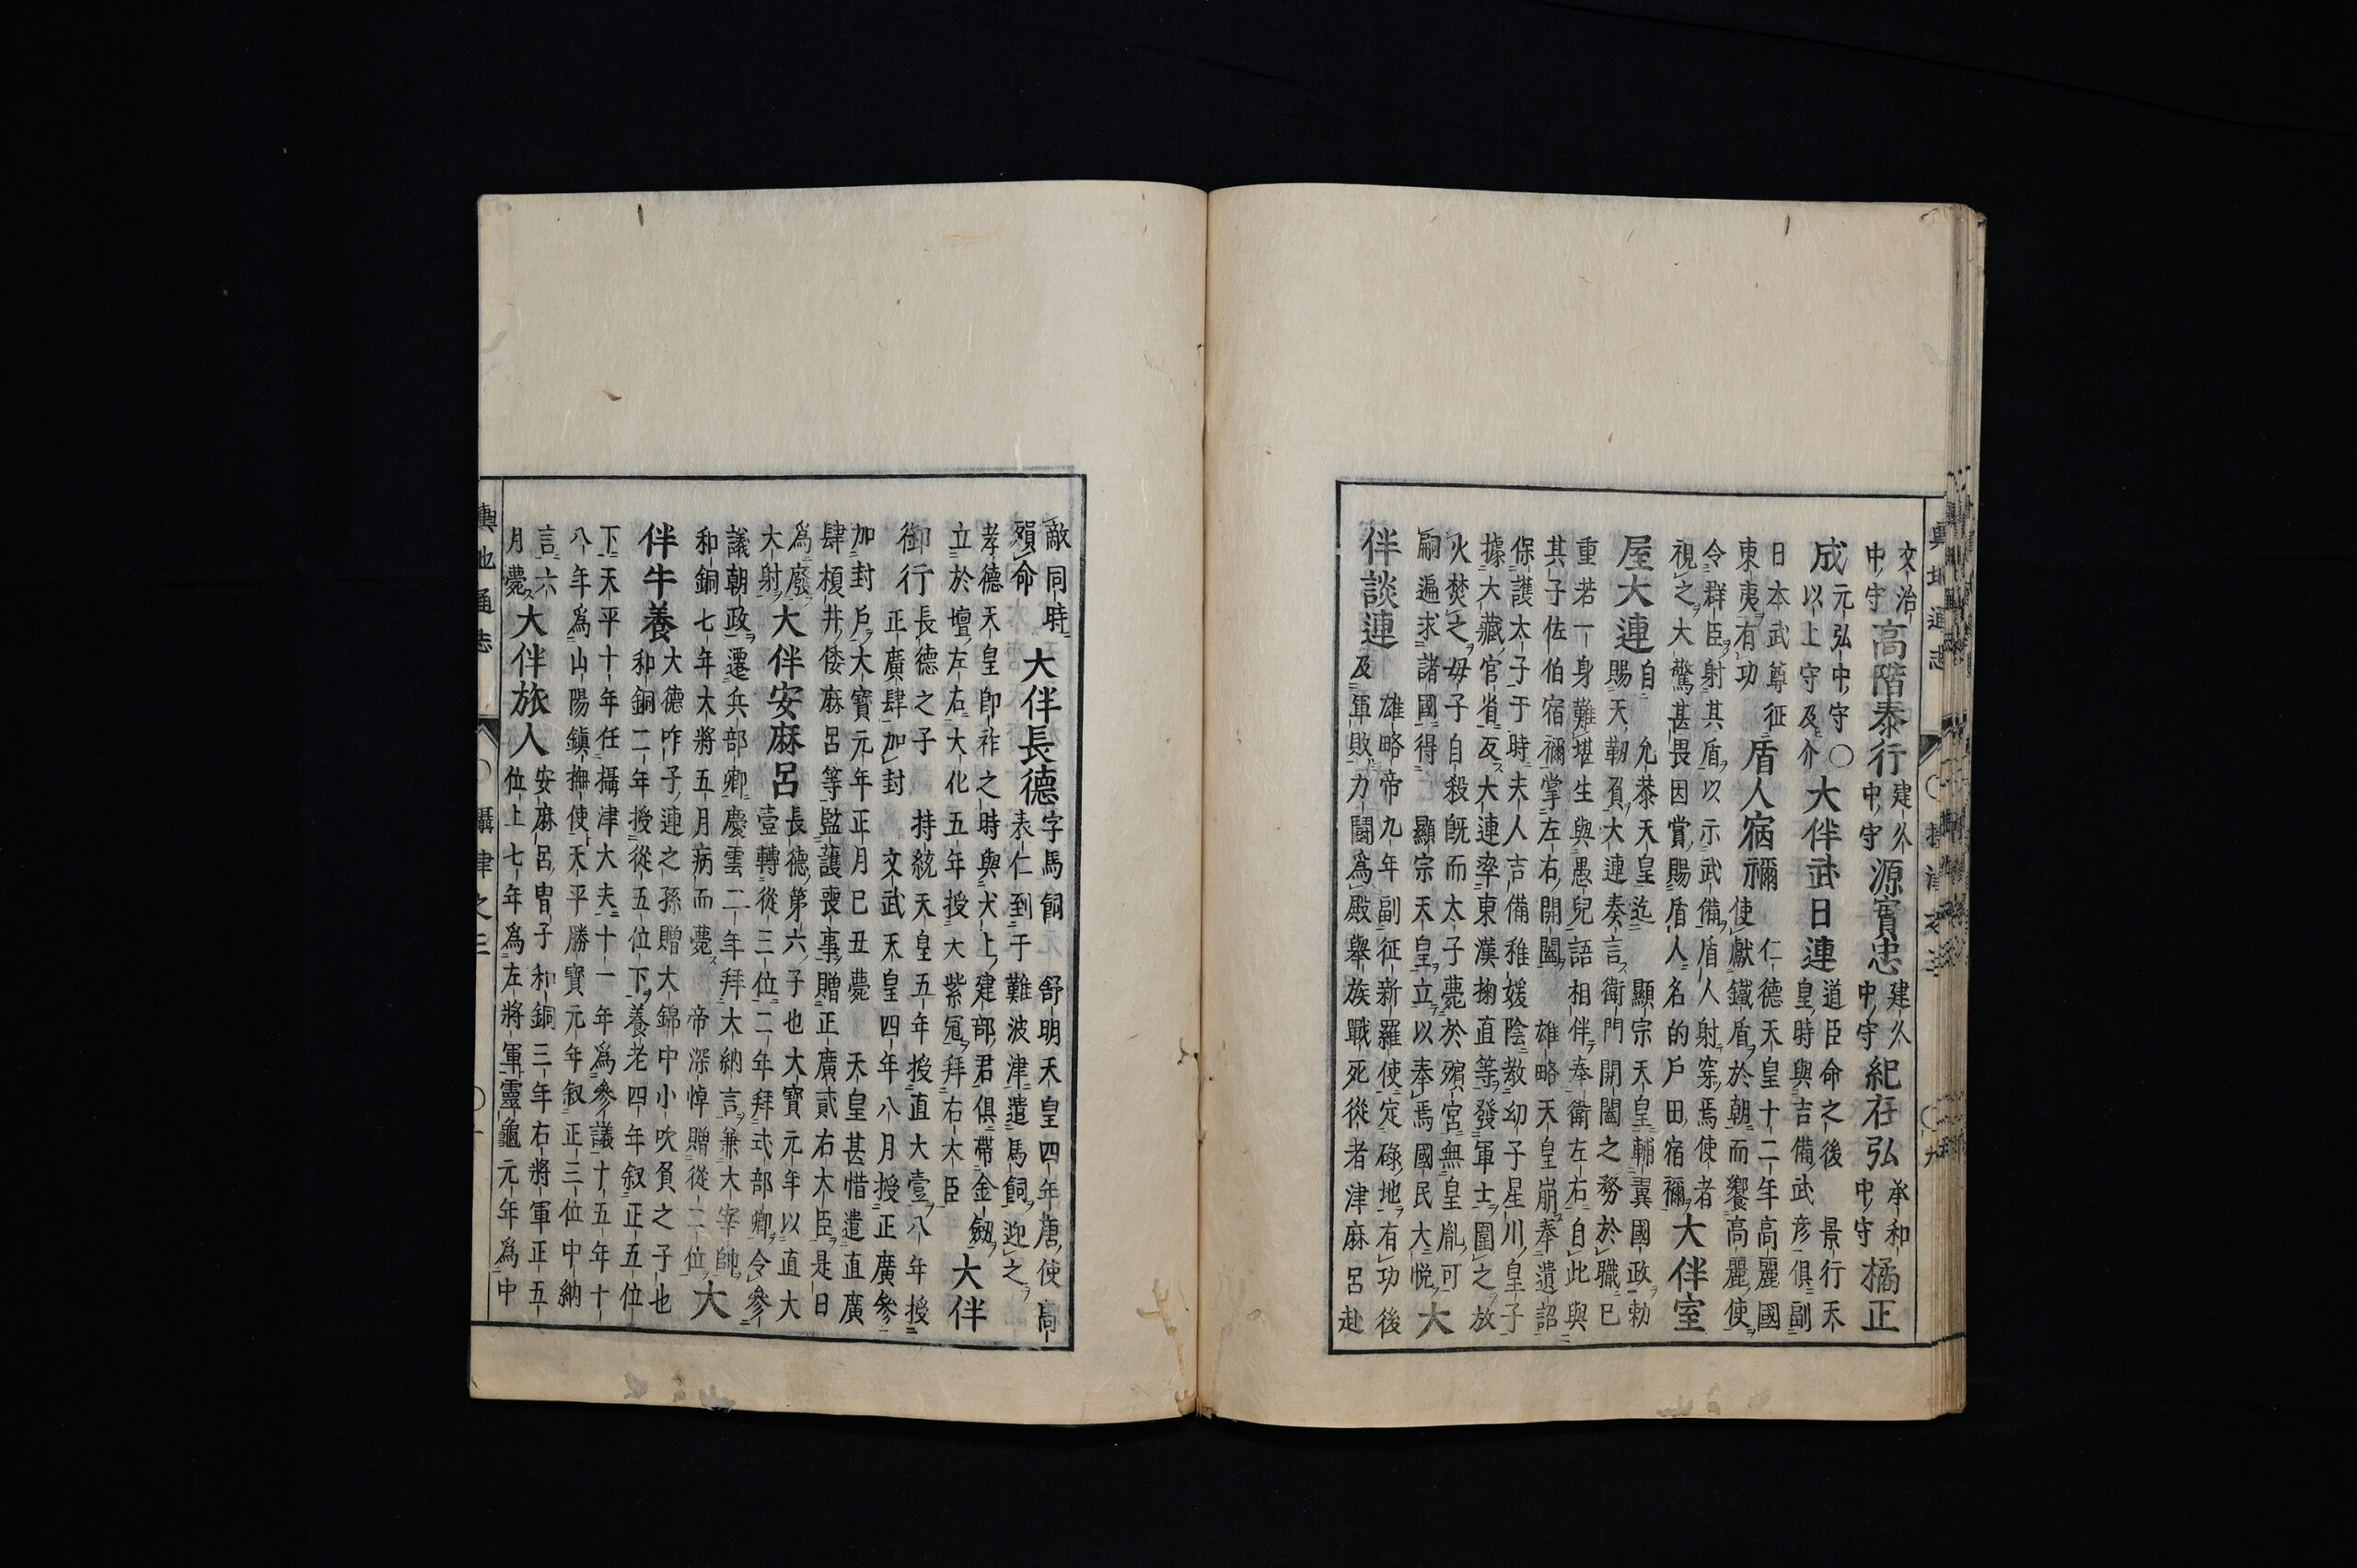 輿地通志 ○ 攝津之三 ○九
文治中守 高階泰行 建久中守 源賓忠 建久中守 紀在弘 承和中守 橘正
成 元弘中守○以上守及介 大伴武日連 道臣命之後 景行天
皇時與吉備武彦俱副
日本武尊征
東夷有功 盾人宿禰 仁德天皇十二年高麗國
使獻鐵盾於朝而饗高麗使
令群臣射其盾以示武備盾人射穿焉使者
視之大驚甚畏因賞賜盾人名的戶田宿禰 大伴室
屋大連 自 允恭天皇迄 顯宗天皇輔翼國政勅
賜天靭負大連奏言衛門開闔之務於職已
重若一身難堪生與愚兒語相伴奉衛左右自此與
其子佐伯宿禰掌左右開闔 雄略天皇崩奉遺詔
保護太子于時夫人吉備稚媛陰教幼子星川皇子
據大藏官省反大連率東漢掬直等發軍士圍之放
火焚之母子自殺既而太子薨於殯宮無皇胤可
嗣遍求諸國得 顯宗天皇立以奉焉國民大悅 大
伴談連 雄略帝九年副征新羅使定碌地有功後
及軍敗力鬪為殿舉族戰死從者津麻呂赴
敵同時
殞命 大伴長德 字馬飼 舒明天皇四年唐使高
表仁到于難波津遣馬飼迎之
孝德天皇卽祚之時與犬上建部君俱帶金劒
立於壇左右大化五年授大紫冠拜右大臣 大伴
御行 長德之子 持統天皇五年授直大壹八年授
正廣肆加封 文武天皇四年八月授正廣參
加封戶大寶元年正月己丑薨 天皇甚惜遣直廣
肆榎井倭麻呂等監護喪事贈正廣貳右大臣是日
為廢
大射 大伴安麻呂 長德第六子也大寶元年以直大
壹轉從三位二年拜式部卿令參
議朝政遷兵部卿慶雲二年拜大納言兼大宰帥
和銅七年大將五月病而薨 帝深悼贈從二位 大
伴牛養 大德咋子連之孫贈大錦中小吹負之子也
和銅二年授從五位下養老四年叙正五位
下天平十年任攝津大夫十一年為參議十五年十
八年為山陽鎭撫使天平勝寶元年叙正三位中納
言六
月薨 大伴旅人 安麻呂冑子和銅三年右將軍正五
位上七年為左將軍靈龜元年為中
輿地通志 ○ 攝津之三 ○十